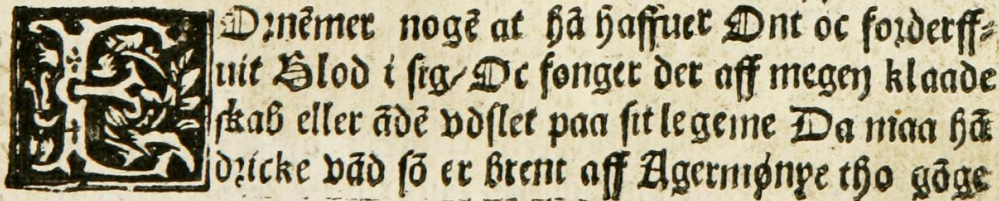 FOrnēmer nogē at hā haffuer Ont oc forderff⸗
uit Blod i sig/ Oc fonger der aff megen klaade
skab eller ādē vdslet paa sit legeme Da maa hā
dricke vād sō er brent aff Agermønye tho gōge